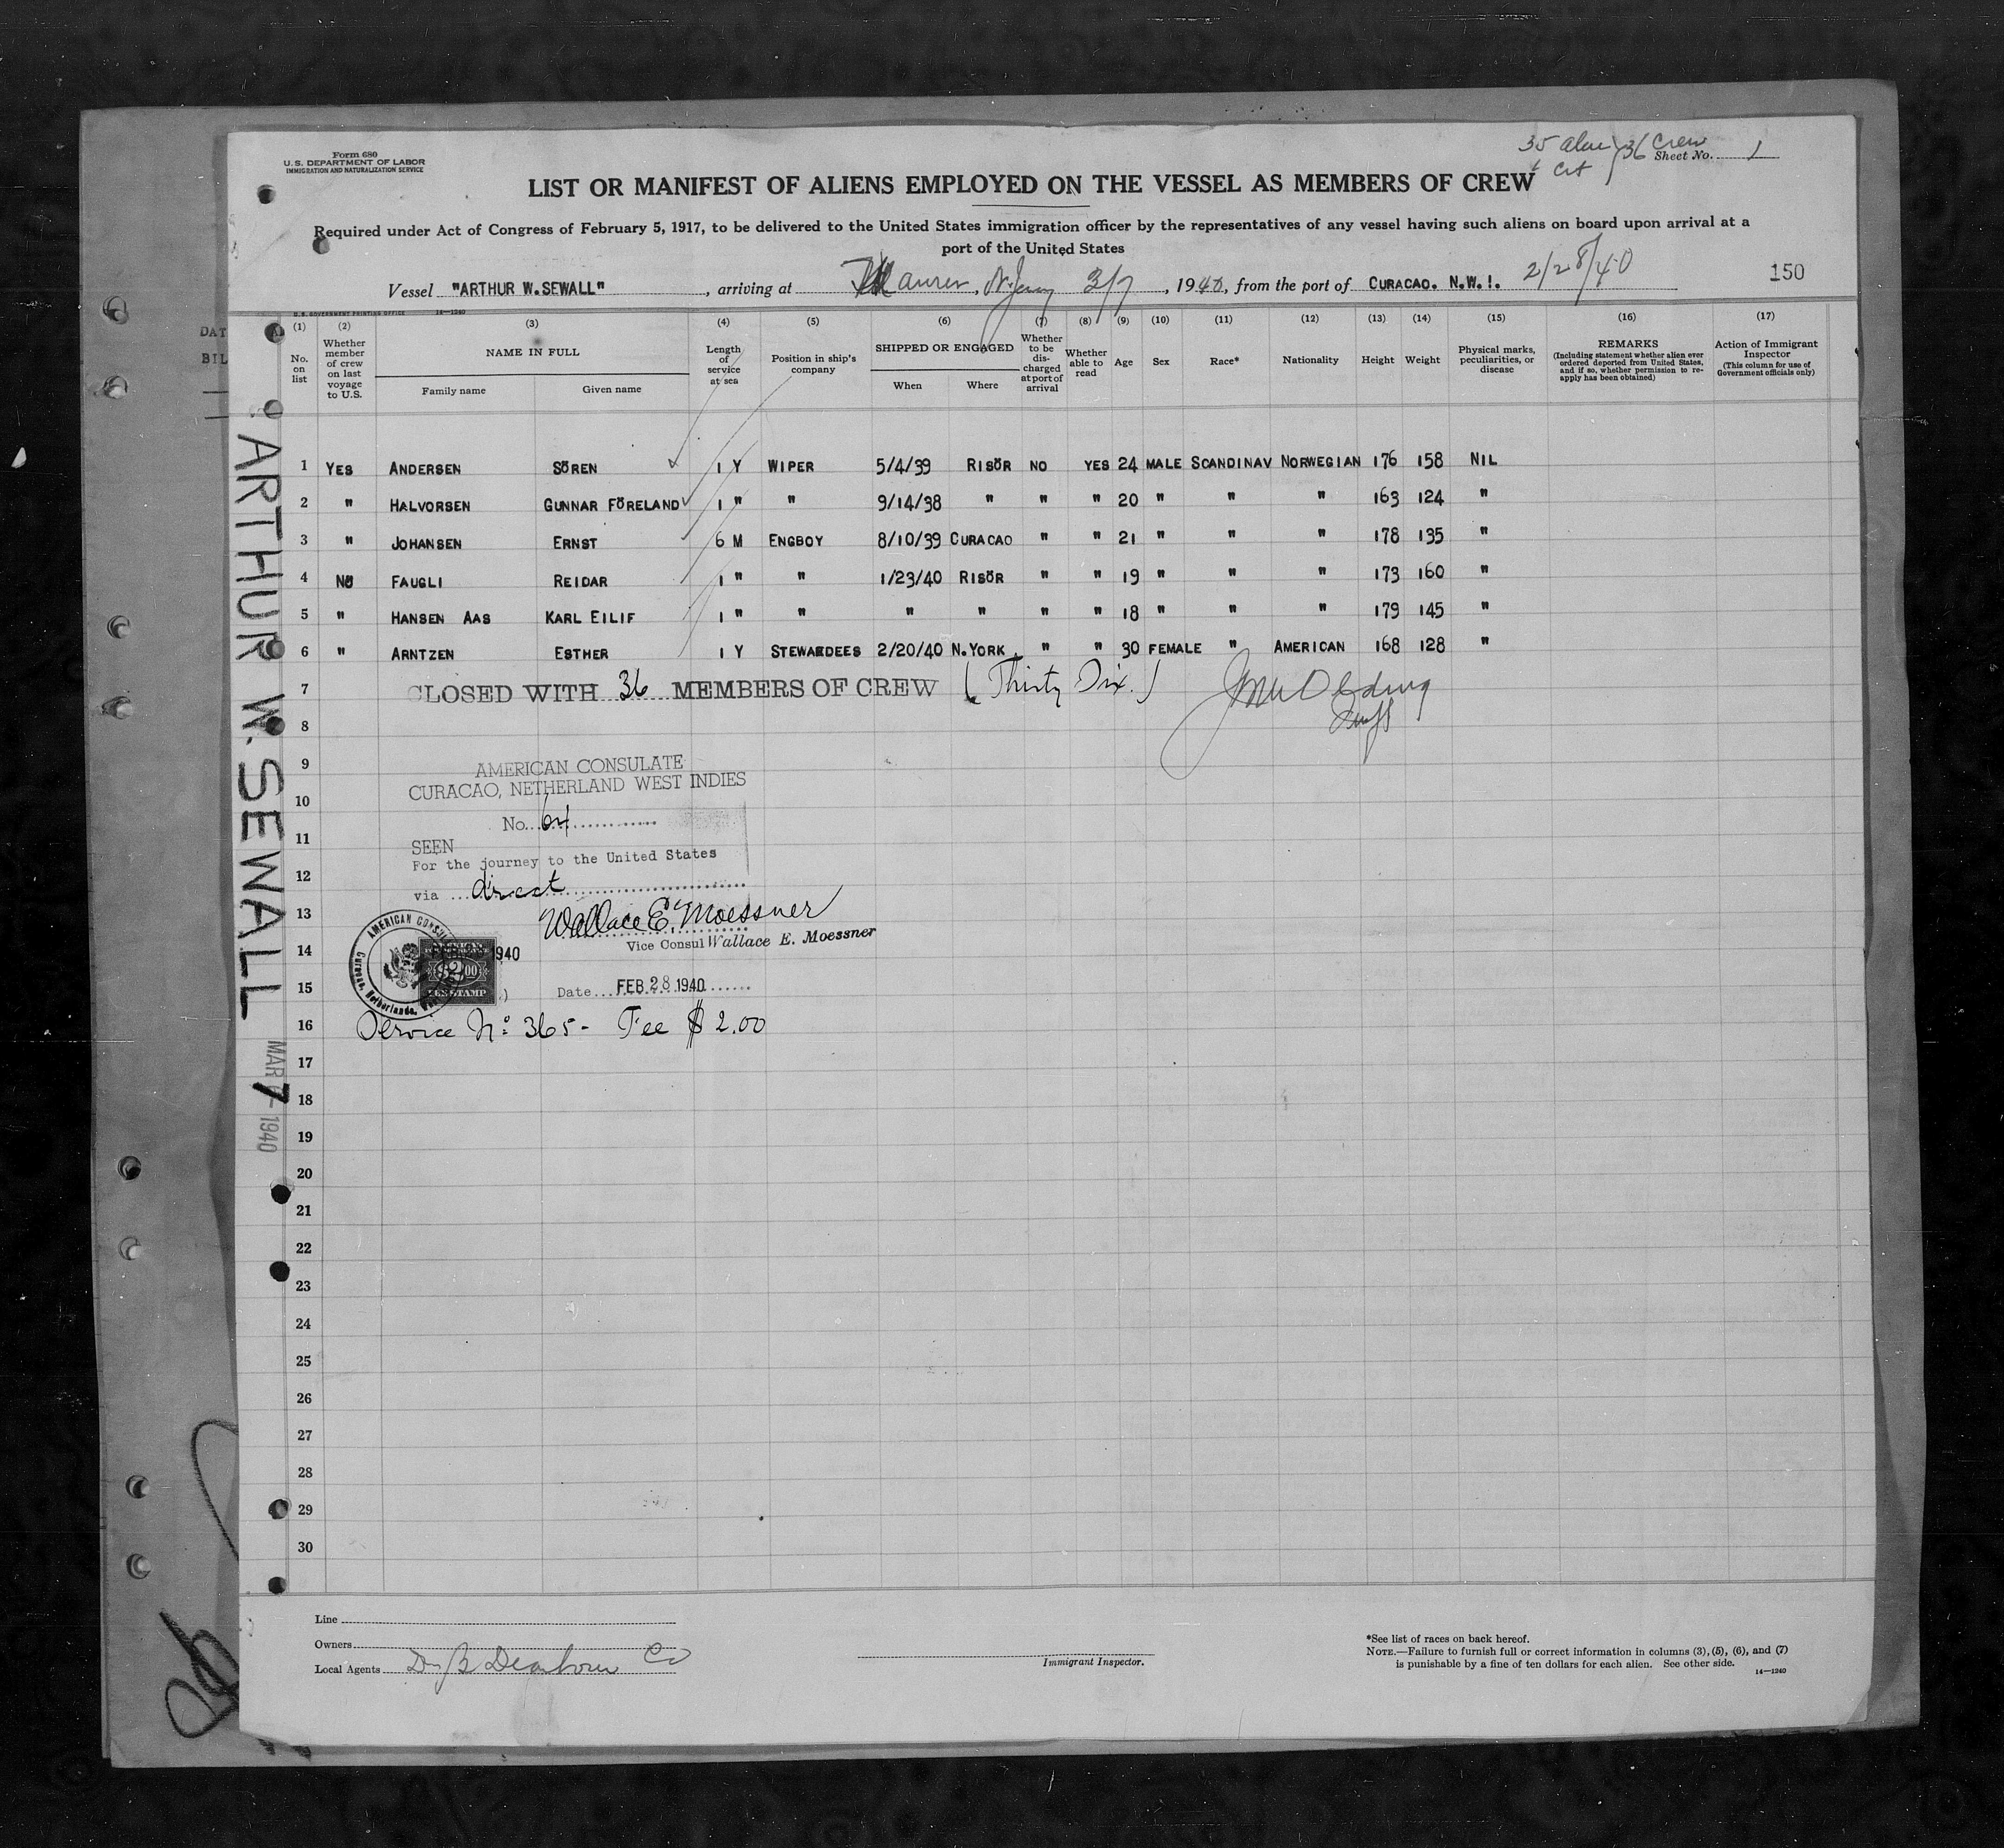 Form 680
U. S. DEPARTMENT OF LABOR
IMMIGRATION AND NATURALIZATION SERVICE
35 alien } 36 Crew
Cit
Sheet No. 1
LIST OR MANIFEST OF ALIENS EMPLOYED ON THE VESSEL AS MEMBERS OF CREW
Required under Act of Congress of February 5, 1917, to be delivered to the United States immigration officer by the representatives of any vessel having such aliens on board upon arrival at a
port of the United States
Vessel "ARTHUR W.SEWALL", arriving at Maurer, N. Jersey 3/7, 1940, from the port of CURACAO. N.W.I. 2/28/40
150
U. S. GOVERNMENT PRINTING OFFICE 14—1240
DAT
BIL
(1) (2) (3) (4) (5) (6) (7) (8) (9) (10) (11) (12) (13) (14) (15) (16) (17)
No. on list
Whether member of crew on last voyage to U.S.
NAME IN FULL
Family name
Given name
Length of service at sea
Position in ship's company
SHIPPED OR ENGAGED
When
Where
Whether to be discharged at port of arrival
Whether able to read
Age
Sex
Race*
Nationality
Height
Weight
Physical marks, peculiarities, or disease
REMARKS
(Including statement whether alien ever ordered deported from United States, and if so, whether permission to re-apply has been obtained)
Action of Immigrant Inspector
(This column for use of Government officials only)
1 YES ANDERSEN SÖREN 1 Y WIPER 5/4/39 RISÖR NO YES 24 MALE SCANDINAV NORWEGIAN 176 158 NIL
2 " HALVORSEN GUNNAR FÖRELAND 1 " " 9/14/38 " " " 20 " " " 163 124 "
3 " JOHANSEN ERNST 6 M ENGBOY 8/10/39 CURACAO " " 21 " " " 178 135 "
4 NO FAUGLI REIDAR 1 " " 1/23/40 RISÖR " " 19 " " " 173 160 "
5 " HANSEN AAS KARL EILIF 1 " " " " " " 18 " " " 179 145 "
6 " ARNTZEN ESTHER 1 Y STEWARDEES 2/20/40 N.YORK. " " 30 FEMALE " AMERICAN 168 128 "
7 CLOSED WITH 36 MEMBERS OF CREW (Thirty Six.)
8
9 AMERICAN CONSULATE
CURACAO, NETHERLAND WEST INDIES
10
No. 64
11
SEEN
For the journey to the United States
12
via direct
13 Wallace E. Moessner
Vice Consul Wallace E. Moessner
14
AMERICAN CONSUL
Curacao, Netherlands, W
1940
$2.00
STAMP
15 Date FEB 28 1940
16 Service No 365 - Fee $ 2.00
17
18
19
20
21
22
23
24
25
26
27
28
29
30
ARTHUR W. SEWALL
MAR 7 - 1940
Line
Owners
Local Agents D. B. Dearborn Co
Immigrant Inspector.
*See list of races on back hereof.
NOTE.—Failure to furnish full or correct information in columns (3), (5), (6), and (7)
is punishable by a fine of ten dollars for each alien. See other side.
14—1240